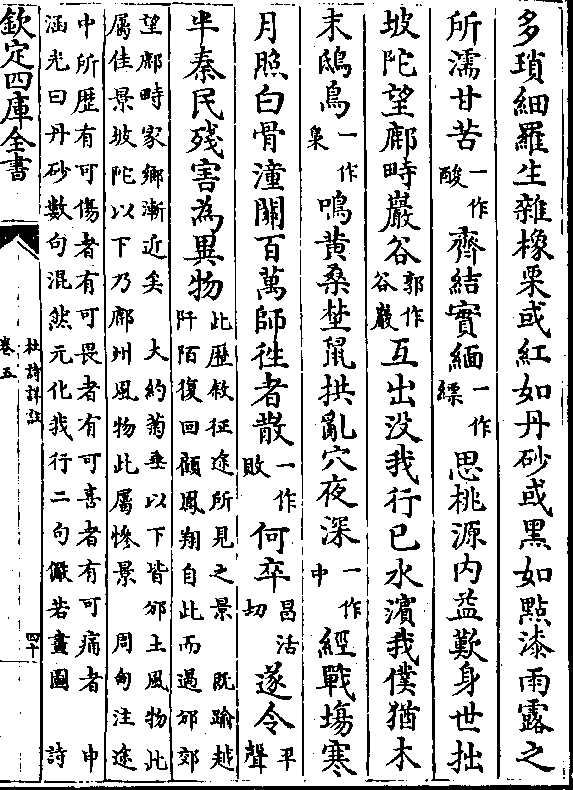 多瑣細羅生雜橡栗或紅如丹砂或黑如點漆雨露之
所濡甘苦一作酸齊結實緬一作縹思桃源内益歎身世拙
坡陀望鄜畤巖谷郭作谷巖互出没我行已水濱我僕猶木
末鴟鳥一作梟鳴黄桑埜鼠拱亂穴夜深一作中經戰塲寒
月照白骨潼關百萬師徃者散一作敗何卒昌活切遂令平聲
半秦民殘害為異物此歴敘征途所見之景 既踰越
阡陌復回顧鳳翔自此而過邠郊
望鄜畤家鄉漸近矣 大約菊垂以下皆邠土風物此
屬佳景坡陀以下乃鄜州風物此屬慘景 周甸注途
中所歴有可傷者有可畏者有可喜者有可痛者 申
涵光曰丹砂數句混然元化我行二句儼若畫圖 詩
欽定四庫全書
杜詩詳註
卷五
四十